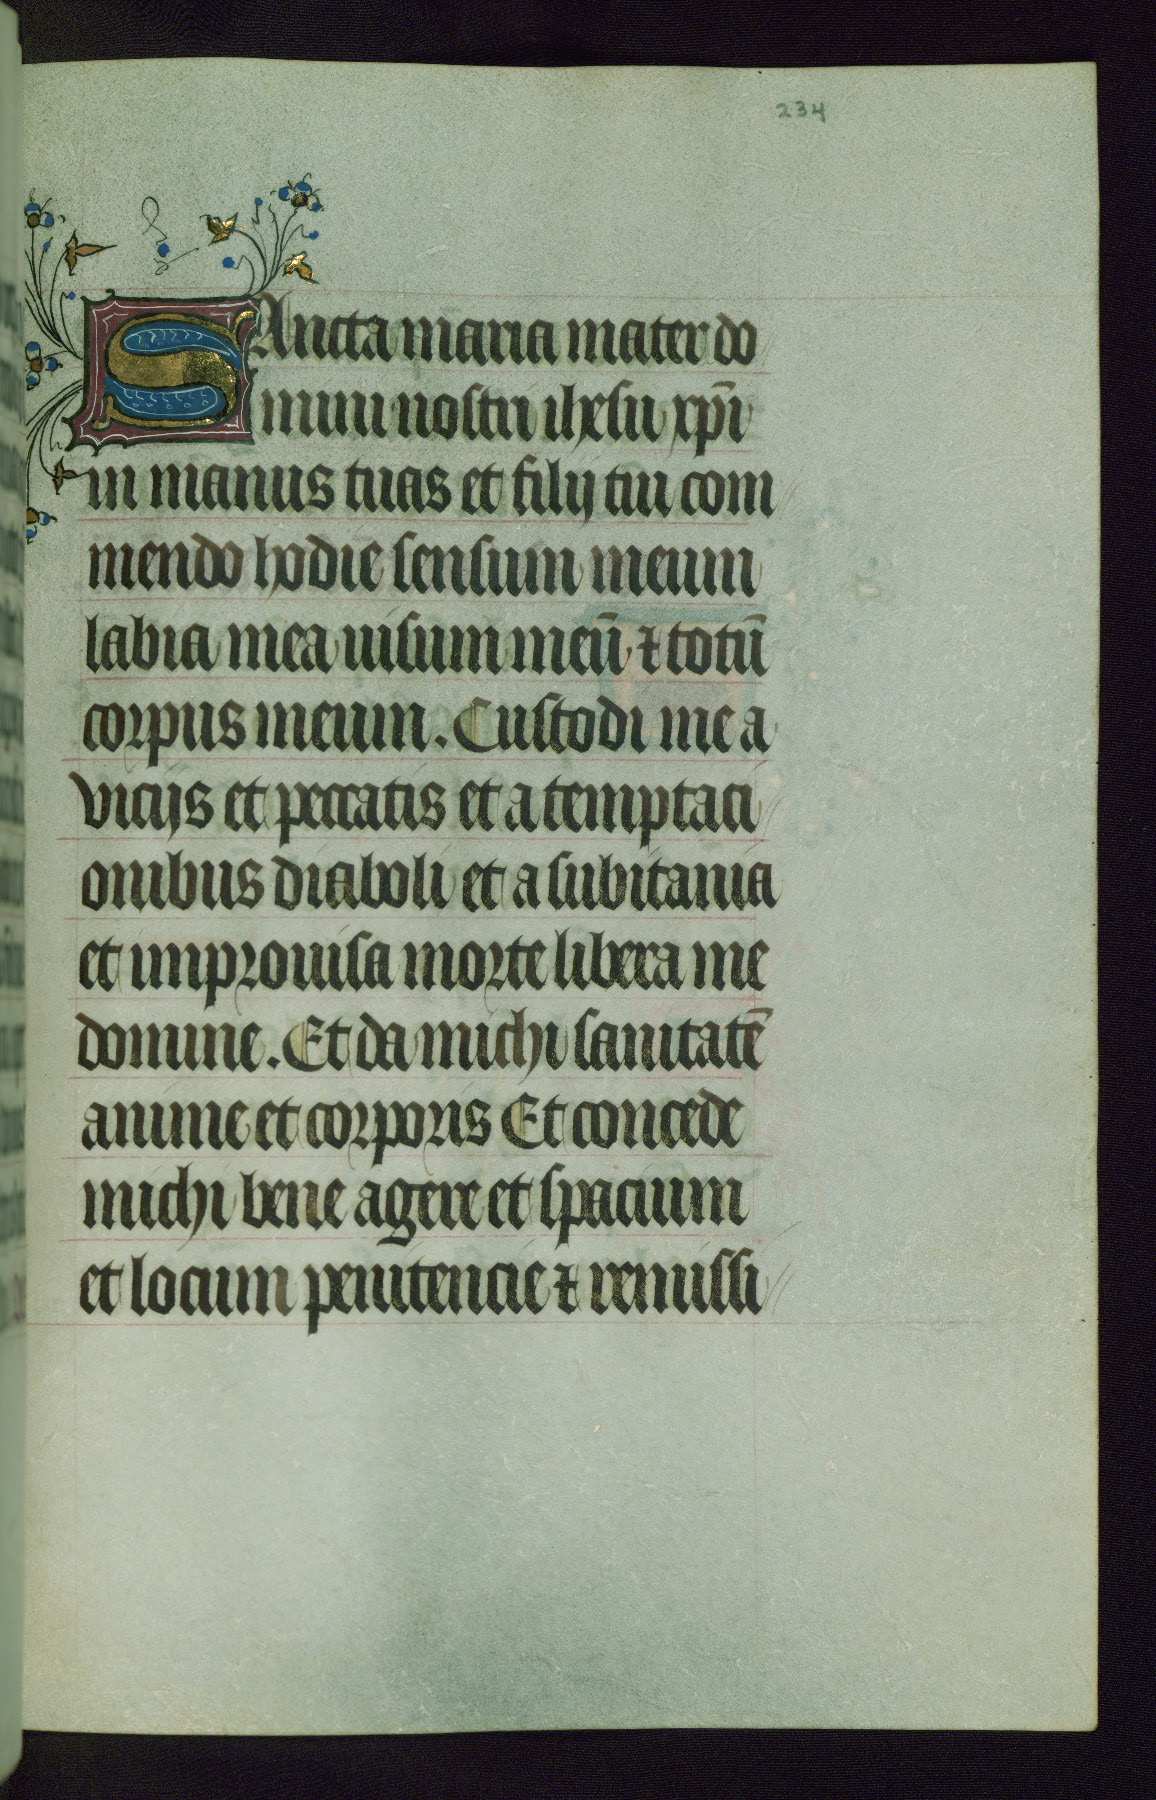 234
SAncta maria mater do
mini nostri ihesu xp̄i
in manus tuas et filij tui com
mendo hodie sensum meum
labia mea uisum meū ⁊ totū
corpus meum. Custodi me a
vicijs et peccatis et a temptaci
onibus diaboli et a subitania
et improuisa morte libera me
domine. Et da michi sanitatē
anime et corporis Et concede
michi bene agere et spacium
et locum penitencie ⁊ remissi